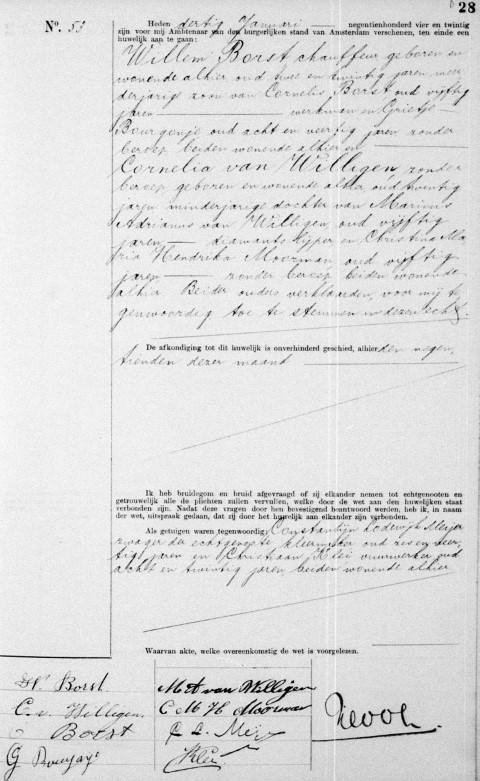 28
No. 53
Heden dertig Januari negentienhonderd vier en twintig
zijn voor mij Ambtenaar van den burgerlijken stand van Amsterdam verschenen, ten einde een
huwelijk aan te gaan:
Willem Borst chauffeur geboren en
wonende alhier oud twee en twintig jaren, min
derjarige zoon van Cornelis Borst oud vijftig
jaren werkman en Grietje
Bourgonje oud acht en veertig jaren, zonder
beroep beiden wonende alhier en
Cornelia van Willigen, zonder
beroep geboren en wonende alhier, oud twintig
jaren minderjarige dochter van Marinus
Adrianus van Willigen, oud vijftig
jaren diamantslijper en Christina Ma
ria Hendrika Moorman oud vijftig
jaren zonder beroep beiden wonende
alhier Beider ouders verklaarden, voor mij te
genwoordig toe te stemmen in dezen echt.
De afkondiging tot dit huwelijk is onverhinderd geschied, alhier den negen
tienden dezer maand
Ik heb bruidegom en bruid afgevraagd of zij elkander nemen tot echtgenooten en
getrouwelijk alle de plichten zullen vervullen, welke door de wet aan den huwelijken staat
verbonden zijn. Nadat deze vragen door hen bevestigend beantwoord werden, heb ik, in naam
der wet, uitspraak gedaan, dat zij door het huwelijk aan elkander zijn verbonden.
Als getuigen waren tegenwoordig: Constantijn Lodewijk Meijer
zwager der echtgenoote kleermaker oud zes en veer
tig jaren en Christiaan Klei vuurwerker oud
acht en twintig jaren, beiden wonende alhier
Waarvan akte, welke overeenkomstig de wet is voorgelezen.
W. Borst M A van Willigen
C. v. Willigen C M H Moorman
C Borst C L Meijer
G Bourgonje Klei